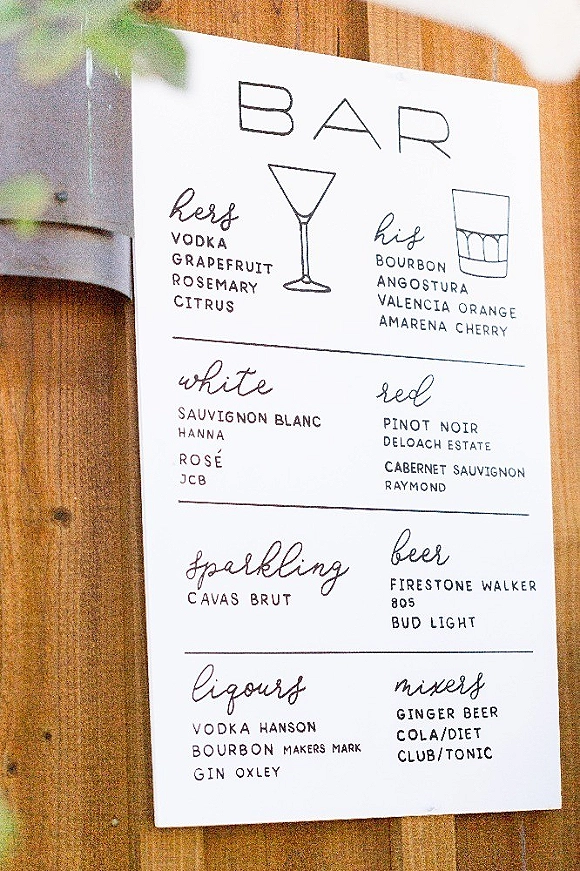 BAR
hers
VODKA
GRAPEFRUIT
ROSEMARY
CITRUS
his
BOURBON
ANGOSTURA
VALENCIA ORANGE
AMARENA CHERRY
white
SAUVIGNON BLANC
HANNA
ROSÉ
JCB
red
PINOT NOIR
DELOACH ESTATE
CABERNET SAUVIGNON
RAYMOND
sparkling
CAVAS BRUT
beer
FIRESTONE WALKER
805
BUD LIGHT
liqours
VODKA HANSON
BOURBON MAKERS MARK
GIN OXLEY
mixers
GINGER BEER
COLA/DIET
CLUB/TONIC